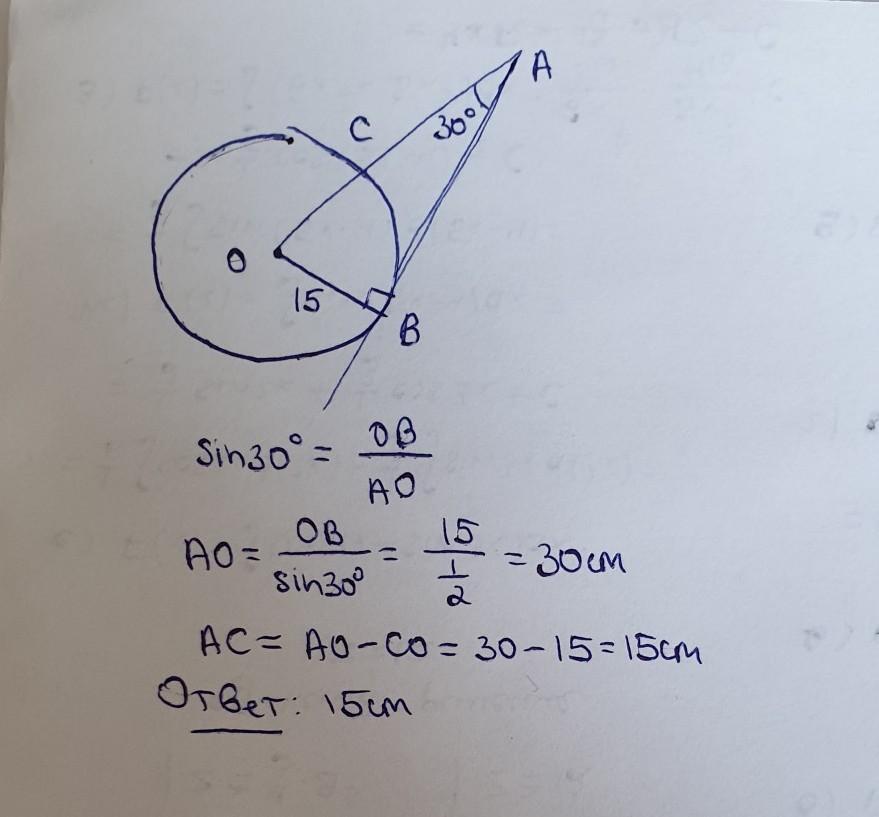 A
C
30°
O
15
B
sin30° = OB/AO
AO = OB/sin30° = 15/(1/2) = 30см
AC = AO - CO = 30 - 15 = 15см
Ответ: 15см